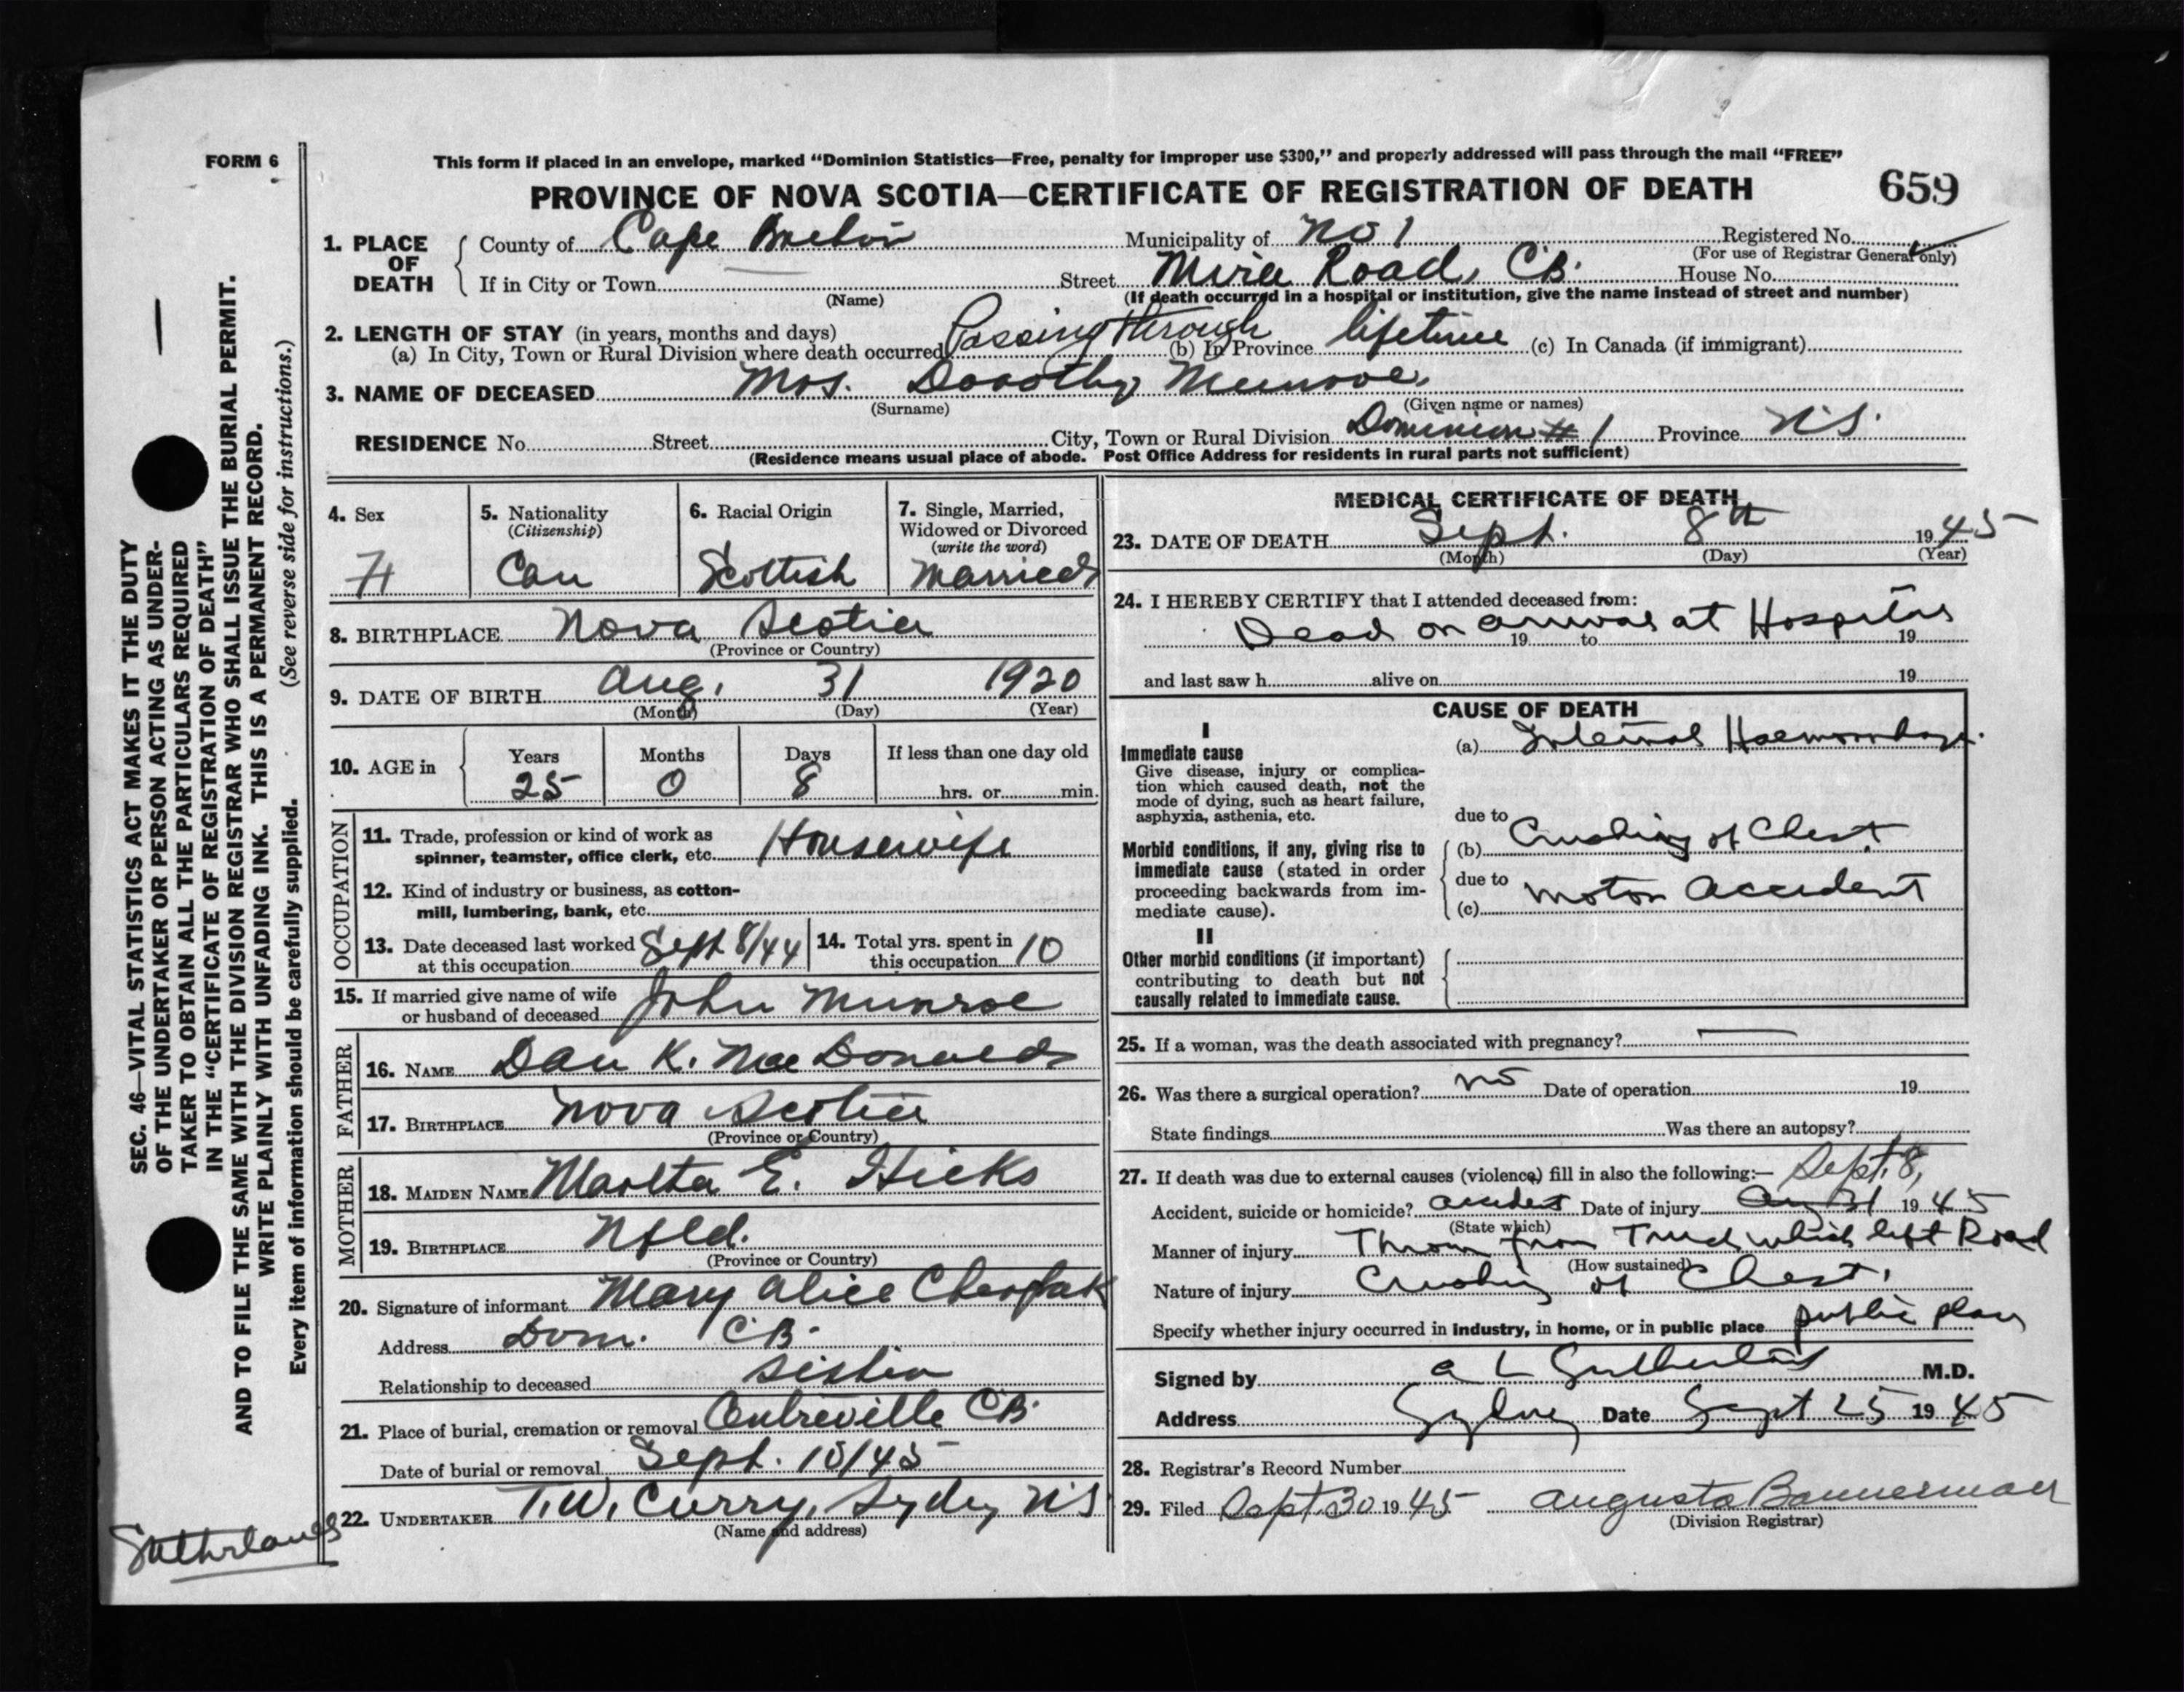 FORM 6
This form if placed in an envelope, marked "Dominion Statistics—Free, penalty for improper use $300," and properly addressed will pass through the mail "FREE"
PROVINCE OF NOVA SCOTIA—CERTIFICATE OF REGISTRATION OF DEATH 659
1. PLACE OF DEATH
County of Cape Breton Municipality of No 1 Registered No.
(For use of Registrar General only)
If in City or Town Street Mira Road, C.B. House No.
(Name) (If death occurred in a hospital or institution, give the name instead of street and number)
2. LENGTH OF STAY (in years, months and days)
(a) In City, Town or Rural Division where death occurred Passing through (b) In Province lifetime (c) In Canada (if immigrant)
3. NAME OF DECEASED Mrs. Dorothy Munroe
(Surname) (Given name or names)
RESIDENCE No. Street City, Town or Rural Division Dominion # 1 Province N.S.
(Residence means usual place of abode. Post Office Address for residents in rural parts not sufficient)
4. Sex F
5. Nationality (Citizenship) Can
6. Racial Origin Scottish
7. Single, Married, Widowed or Divorced (write the word) Married
8. BIRTHPLACE Nova Scotia
(Province or Country)
9. DATE OF BIRTH Aug. 31 1920
(Month) (Day) (Year)
10. AGE in Years 25 Months 0 Days 8 If less than one day old hrs. or min.
OCCUPATION
11. Trade, profession or kind of work as spinner, teamster, office clerk, etc. Housewife
12. Kind of industry or business, as cotton-mill, lumbering, bank, etc.
13. Date deceased last worked at this occupation Sept 8/44
14. Total yrs. spent in this occupation 10
15. If married give name of wife or husband of deceased John Munroe
FATHER
16. NAME Dan K. MacDonald
17. BIRTHPLACE Nova Scotia
(Province or Country)
MOTHER
18. MAIDEN NAME Martha E. Hicks
19. BIRTHPLACE Nfld.
(Province or Country)
20. Signature of informant Mary Alice
Address Dom. C.B.
Relationship to deceased sister
21. Place of burial, cremation or removal Centreville C.B.
Date of burial or removal Sept. 10/45
22. UNDERTAKER T.W. Curry, Sydney N.S.
(Name and address)
MEDICAL CERTIFICATE OF DEATH
23. DATE OF DEATH Sept. 8th 1945
(Month) (Day) (Year)
24. I HEREBY CERTIFY that I attended deceased from:
Dead on arrival at Hospital
19 to 19
and last saw h alive on 19
CAUSE OF DEATH
I
Immediate cause
Give disease, injury or complication which caused death, not the mode of dying, such as heart failure, asphyxia, asthenia, etc.
(a) Internal Haemorrhage.
due to
Morbid conditions, if any, giving rise to immediate cause (stated in order proceeding backwards from immediate cause).
(b) Crushing of Chest
due to
(c) Motor Accident
II
Other morbid conditions (if important) contributing to death but not causally related to immediate cause.
25. If a woman, was the death associated with pregnancy? —
26. Was there a surgical operation? no Date of operation 19
State findings Was there an autopsy?
27. If death was due to external causes (violence) fill in also the following:— Sept. 8,
Accident, suicide or homicide? accident Date of injury Aug 31 1945
(State which)
Manner of injury Thrown from Truck which left Road
(How sustained)
Nature of injury Crushing of Chest.
Specify whether injury occurred in industry, in home, or in public place public place
Signed by A L Sutherland M.D.
Address Sydney Date Sept 25 1945
28. Registrar's Record Number
29. Filed Sept. 30 1945 Augusta Bannerman
(Division Registrar)
SEC. 46—VITAL STATISTICS ACT MAKES IT THE DUTY
OF THE UNDERTAKER OR PERSON ACTING AS UNDER-
TAKER TO OBTAIN ALL THE PARTICULARS REQUIRED
IN THE "CERTIFICATE OF REGISTRATION OF DEATH"
AND TO FILE THE SAME WITH THE DIVISION REGISTRAR WHO SHALL ISSUE THE BURIAL PERMIT.
WRITE PLAINLY WITH UNFADING INK. THIS IS A PERMANENT RECORD.
Every item of information should be carefully supplied. (See reverse side for instructions.)
Sutherland